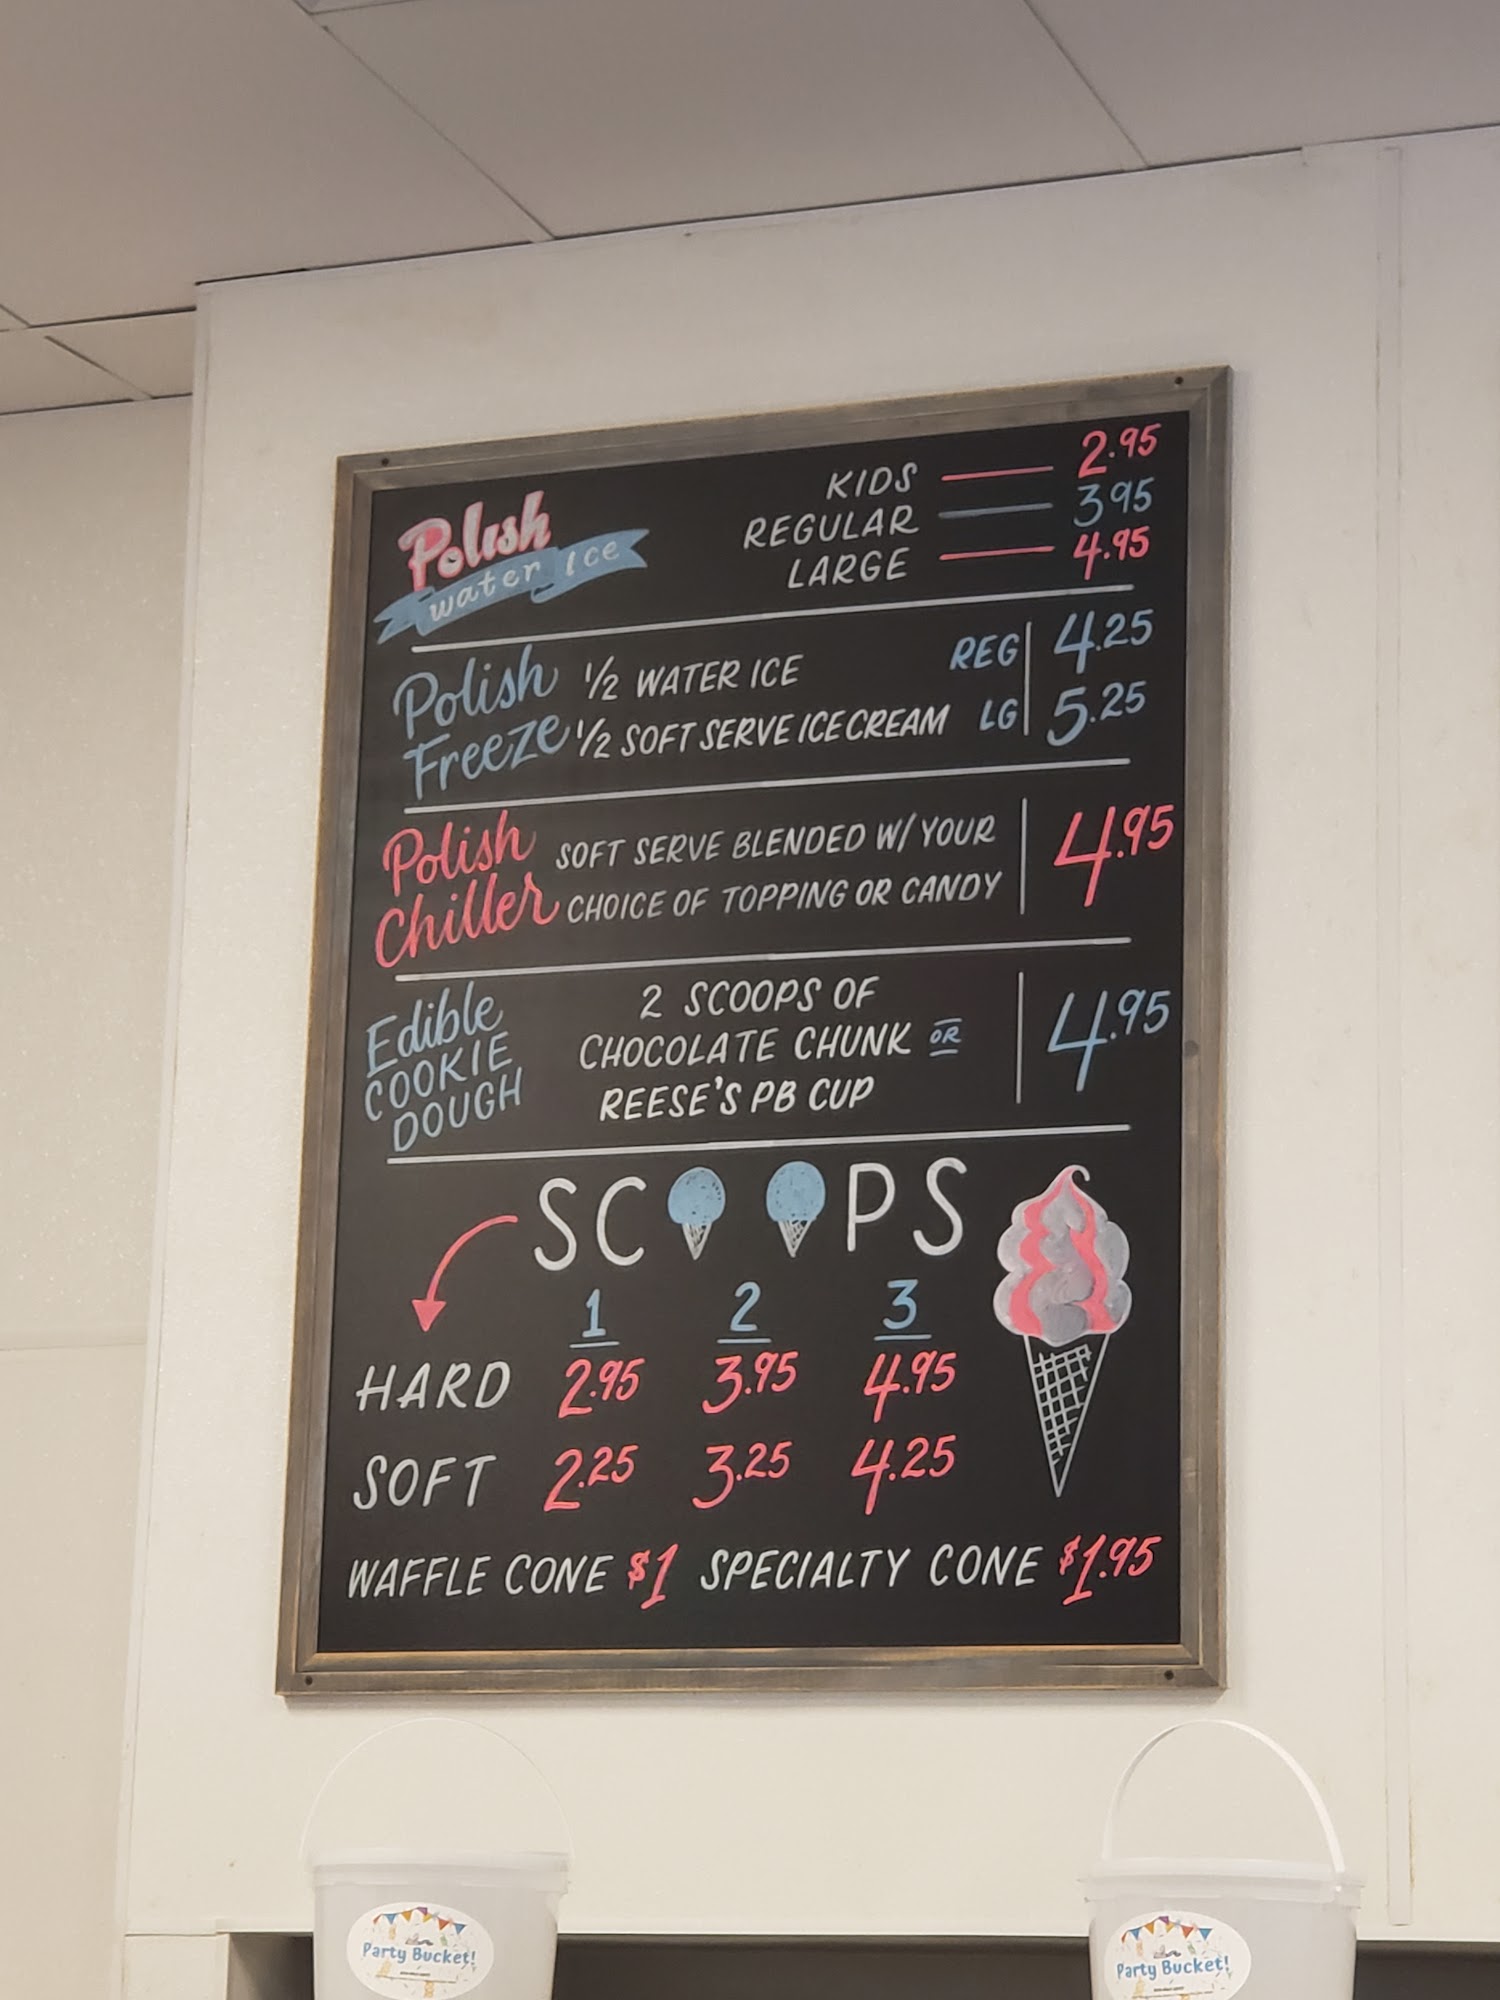 Polish
water Ice
KIDS 2.95
REGULAR 3.95
LARGE 4.95
Polish Freeze
1/2 WATER ICE REG 4.25
1/2 SOFT SERVE ICE CREAM LG 5.25
Polish Chiller
SOFT SERVE BLENDED W/ YOUR
CHOICE OF TOPPING OR CANDY
4.95
Edible
COOKIE
DOUGH
2 SCOOPS OF
CHOCOLATE CHUNK OR
REESE'S PB CUP
4.95
SCOOPS
1 2 3
HARD 2.95 3.95 4.95
SOFT 2.25 3.25 4.25
WAFFLE CONE $1 SPECIALTY CONE $1.95
Party Bucket!
Party Bucket!